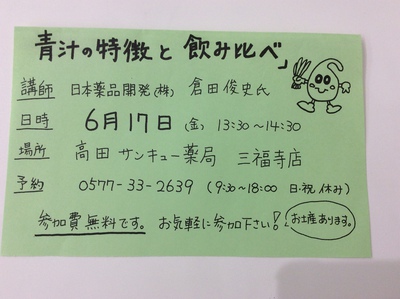 青汁の特徴と飲み比べ」
講師 日本薬品開発(株) 倉田俊史氏
日時 6月17日(金) 13:30〜14:30
場所 高田サンキュー薬局 三福寺店
予約 0577-33-2639 (9:30〜18:00 日・祝休み)
参加費無料です。お気軽に参加下さい! お土産あります。